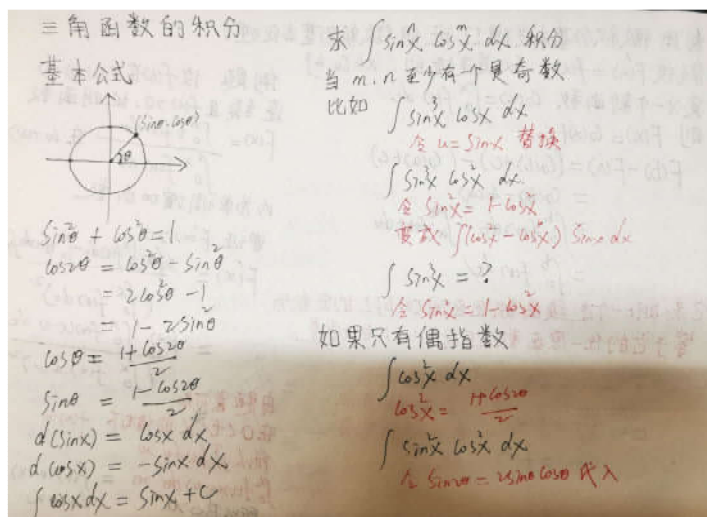 三角函数的积分
基本公式
(sinθ, cosθ)
θ
sin²θ + cos²θ = 1
cos2θ = cos²θ - sin²θ
= 2cos²θ - 1
= 1 - 2sin²θ
cos²θ = (1+cos2θ)/2
sin²θ = (1-cos2θ)/2
d(sinx) = cosx dx
d(cosx) = -sinx dx
∫cosxdx = sinx + C
求 ∫sinⁿx cosᵐx dx 积分
当 m, n 至少有一个是奇数
比如 ∫sin³x cosx dx
令 u = sinx 替换
∫sin³x cos²x dx
令 sin²x = 1-cos²x
变成 ∫(cos²x - cos⁴x) sinx dx
∫sin³x = ?
令 sin²x = 1-cos²x
如果只有偶指数
∫cos²x dx
cos²x = (1+cos2θ)/2
∫sin²x cos²x dx
令 sin2θ = 2sinθcosθ 代入